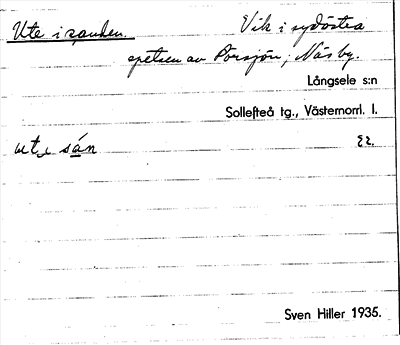 Ute i sanden. Vik i sydöstra
spetsen av Porsjön, Näsby.
Långsele s:n
Sollefteå tg., Västernorrl. l.
ut i sán
Sven Hiller 1935.